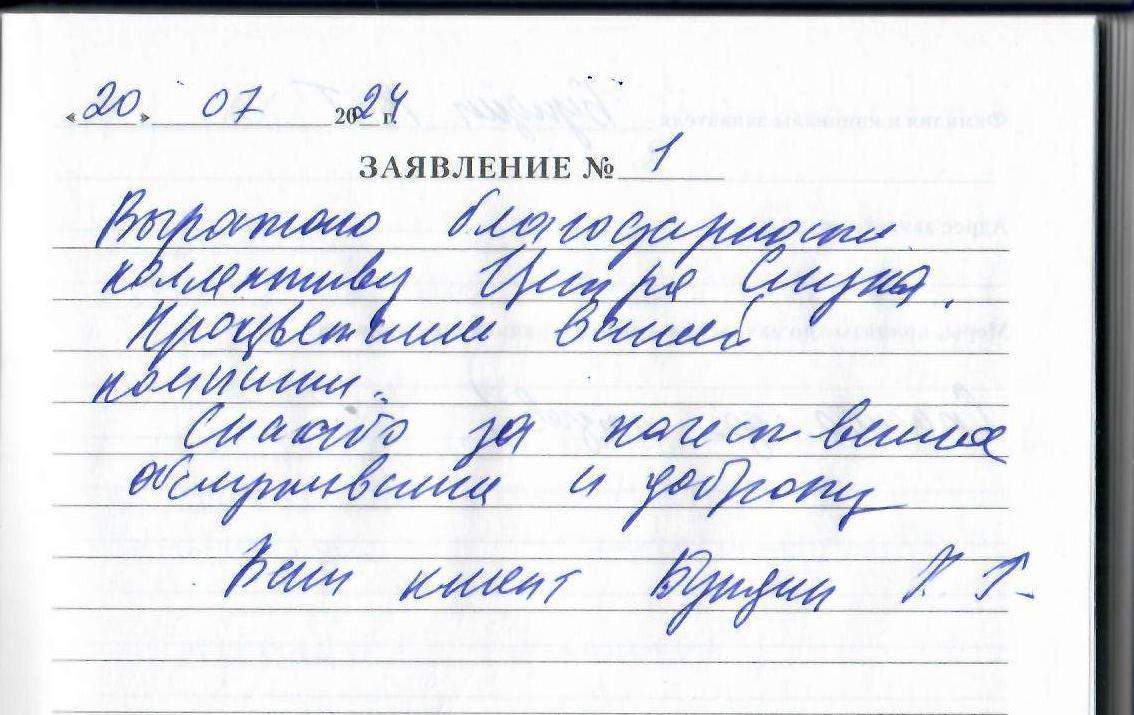 «20» 07 2024 г.
ЗАЯВЛЕНИЕ № 1
Выражаю благодарность
коллективу Центра Слуха.
Процветания вашей
компании.
Спасибо за качественное
обслуживание и доброту
Ваш клиент